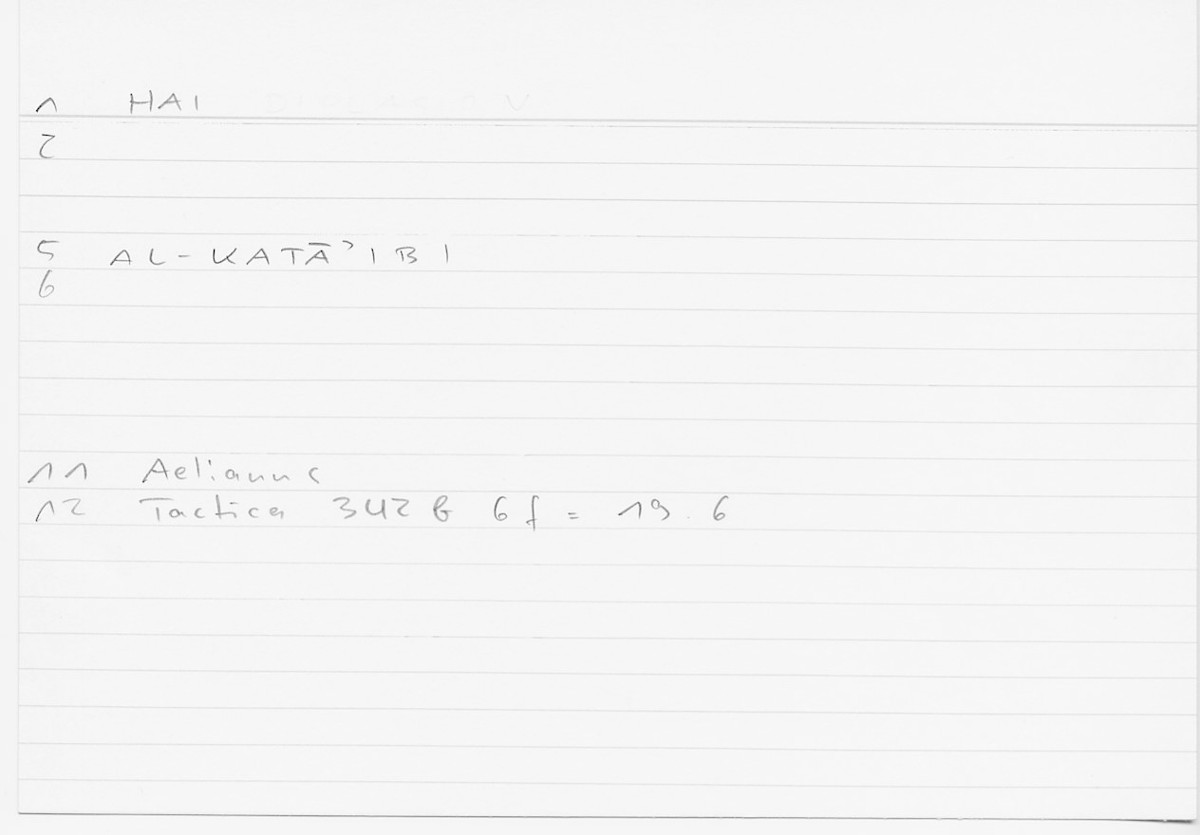 1 HAI
2
5 AL-KATĀʾIBI
6
11 Aelianus
12 Tactica 342 b 6 f = 19.6